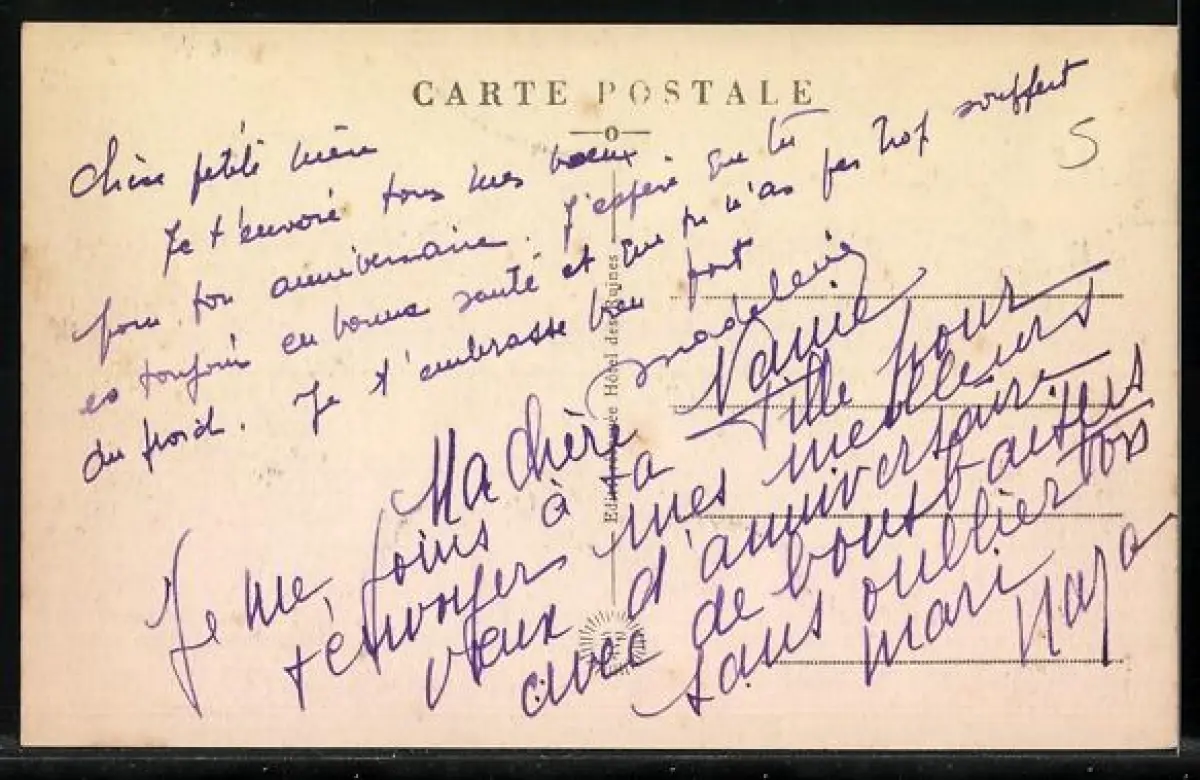 CARTE POSTALE
5
Chère petite mère
Je t'envoie tous mes voeux
pour ton anniversaire. J'espère que tu
es toujours en bonne santé et que tu n'as pas trop souffert
du froid. Je t'embrasse bien fort
Madeleine
Ma chère Nanie
Je me joins à ta fille pour
t'envoyer mes meilleurs
vœux d'anniversaire
avec de bons baisers
sans oublier ton
mari
Hôtel des Ruines